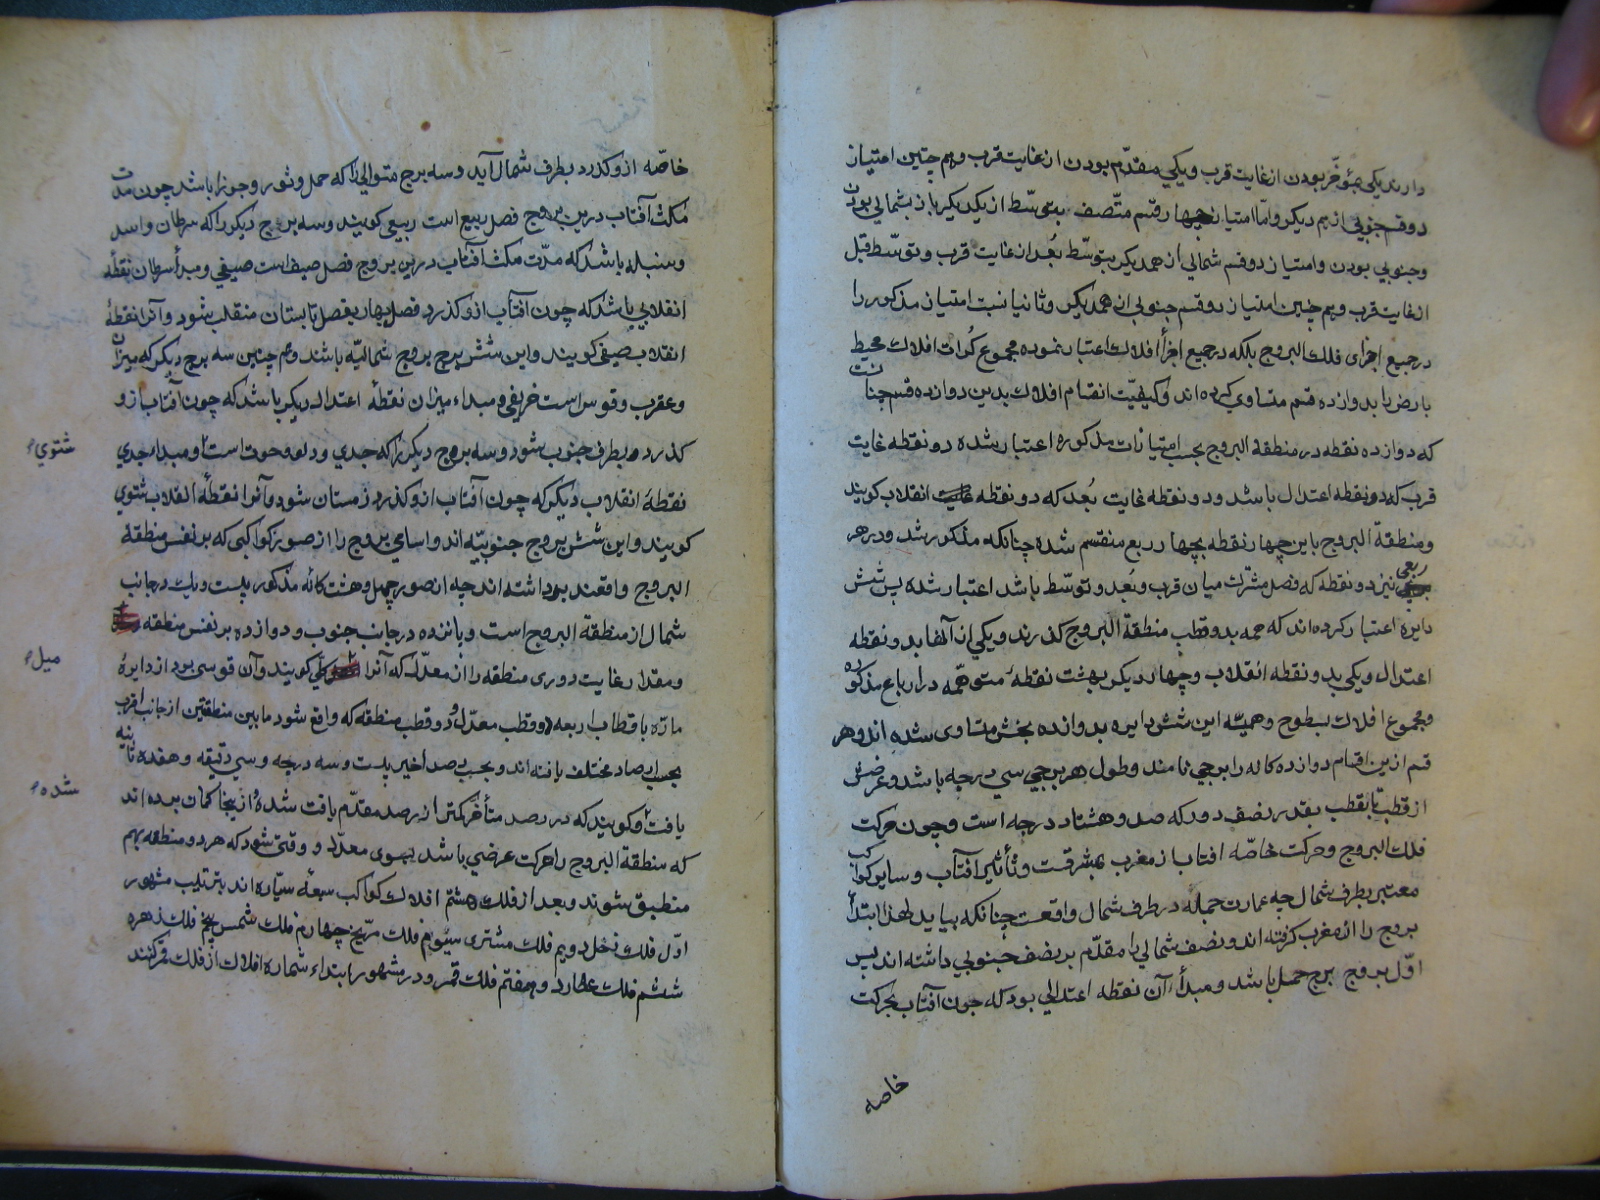 دارند یکی مؤخّر بودن از غایت قرب و یکی مقدّم بودن از غایت قرب و هم چنین امتیاز
دو قسم جنوبی از هم دیگر و امّا امتیاز چهار قسم متّصف بتوسّط از یکدیگر باز بشمالی بودن
و جنوبی بودن و امتیاز دو قسم شمالی از همدیگر بتوسّط بُعد از غایت قرب و توسّط قبل
از غایت قرب و هم چنین امتیاز دو قسم جنوبی از همدیگر و ثانیا نسبت امتیاز مذکور را
در جمیع اجزای فلک البروج بلکه در جمیع اجزأ افلاک اعتبار نموده مجموع کُرات افلاک محیط
بارض را بدوازده قسم متساوی کرده اند و کیفیّت انقسام افلاک بدین دوازده قسم چنانست
که دوازده نقطه در منطقة البروج بحسب امتیازات مذکوره اعتبار شده دو نقطه غایت
قرب که دو نقطه اعتدال باشد و دو نقطه غایت بُعد که دو نقطه انقلاب کویند
و منطقة البروج باین چهار نقطه بچهار ربع منقسم شده چنانکه مذکور شد و در هر
ربعی نیز دو نقطه که فصل مشترک میان قرب و بُعد و توسّط باشد اعتبار شده پس شش
دایره اعتبار کرده اند که همه بدو قطب منطقة البروج کذرند و یکی از آنها بدو نقطه
اعتدال و یکی بدو نقطه انقلاب و چهار دیکر بهشت نقطۀ متوهّمه در ارباع مذکوره
و مجموع افلاک بسطوح وهمیّه این شش دایره بدوازده بخش متساوی شده اند و هر
قسم ازین اقسام دوازده کانه را برجی نامند و طول هر برجی سی درجه باشد و عرضش
از قطب تا بقطب بقدر نصف دور که صد و هشتاد درجه است و چون حرکت
فلک البروج و حرکت خاصّه افتاب از مغرب بمشرقست و تأثیر افتاب و سایر کواکب
معتبر بطرف شمال چه عمارت جمله در طرف شمال واقعست چنانکه بیاید لهذا ابتدأ
بروج را از مغرب کرفته اند و نصف شمالی را مقدّم بر نصف جنوبی داشته اند پس
اوّل بروج برج حمل باشد و مبدأ آن نقطه اعتدالی بود که چون افتاب بحرکت
خاصه
خاصّه ازو کذرد بطرف شمال آید و سه برج متوالی را که حمل و ثور و جوزا باشد چون مدت
مکث آفتاب درین بروج فصل ربیع است ربیعی کویند و سه برج دیکر را که سرطان و اسد
و سنبله باشد که مدّت مکث آفتاب درین بروج فصل صیف است صیفی و مبدأ سرطان نقطه
انقلابی باشد که چون آفتاب ازو کذرد فصل بهار بفصل تابستان منقلب شود و آنرا نقطۀ
انقلاب صیفی کویند و این شش برج بروج شمالیّه باشند و هم چنین سه برج دیکر که میزان
و عقرب و قوس است خریفی و مبداء میزان نقطۀ اعتدال دیکر باشد که چون آفتاب ازو
کذرد بطرف جنوب شود و سه برج دیکر را که جدی و دلو و حوت است و مبداء جدی
شتوی
نقطۀ انقلاب دیکر که چون آفتاب ازو کذرد زمستان شود و آنرا نقطۀ انقلاب شتوی
کویند و این شش برج بروج جنوبیّه اند و اسامی بروج را از صور کواکبی که بر نفس منطقة
البروج واقعند برداشته اند چه از صور چهل و هشت کانه مذکور بیست و یک در جانب
شمال از منطقة البروج است و پانزده در جانب جنوب و دوازده بر نفس منطقه
و مقدار غایت دوری منطقه را از معدّل که آنرا کلّی کویند و آن قوسی بود از دایرۀ
میل
مارّه باقطاب اربعه دو قطب معدّل و دو قطب منطقه که واقع شود ما بین منطقتین از جانب اقرب
بحسب ارصاد مختلف یافته اند و بحسب رصد أخیر بیست و سه درجه و سی دقیقه و هفده ثانیه
یافت و کویند که در رصد متأخّر کمتر از رصد مقدّم یافت شده از ینجا کمان برده اند
شده
که منطقة البروج را حرکت عرضی باشد بسوی معدّل و وقتی شود که هر دو منطقه بهم
منطبق شوند و بعد از فلک هشتم افلاک کواکب سبعه سیّاره اند بترتیب مشهور
اوّل فلک زحل دویم فلک مشتری سیّوم فلک مرّیخ چهارم فلک شمس پنجم فلک زهره
ششم فلک عطارد و هفتم فلک قمر و در مشهور ابتداء شماره افلاک از فلک قمر کنند